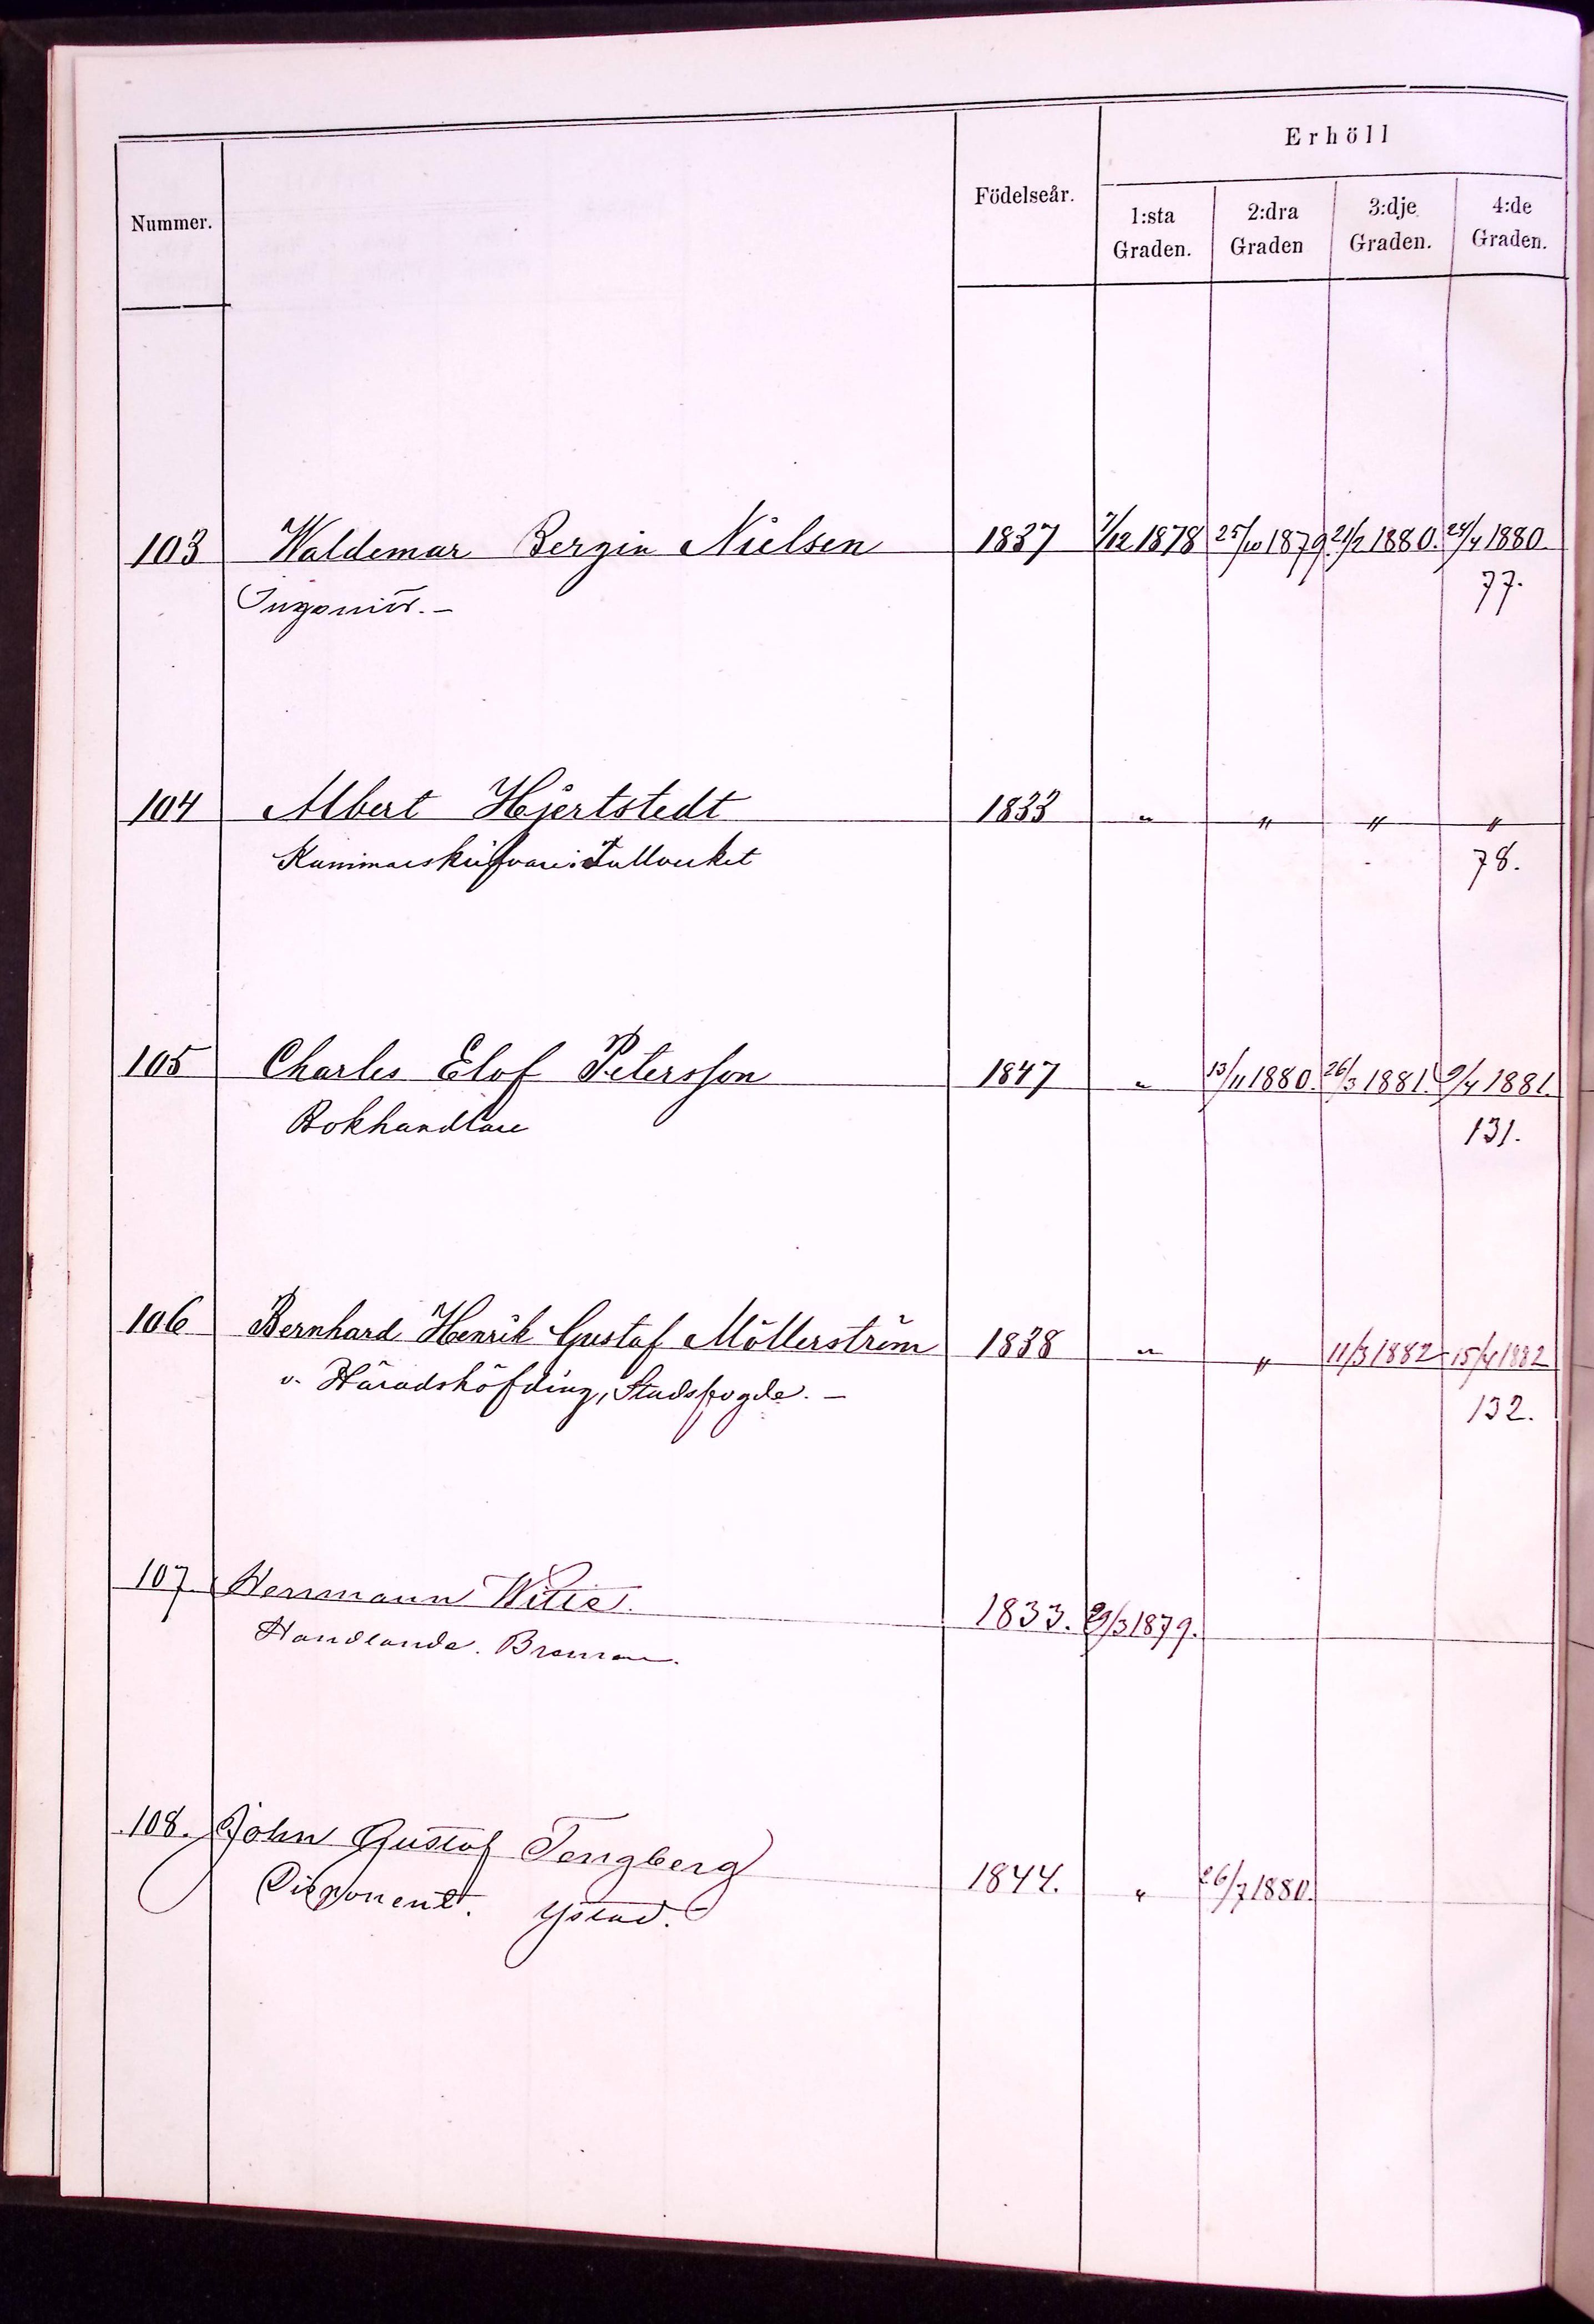 Erhöll
Nummer. Födelseår. 1:sta Graden. 2:dra Graden 3:dje Graden. 4:de Graden.
103 Waldemar Bergin Nielsen 1837 7/12 1878 25/10 1879 21/2 1880. 24/4 1880.
Ingeniör.– 77.
104 Albert Hjertstedt 1833 " " " "
Kammarskrifvare i Tullverket 78.
105 Charles Elof Petersson 1847 " 13/11 1880. 26/3 1881. 9/4 1881.
Bokhandlare 131.
106 Bernhard Henrik Gustaf Möllerström 1838 " " 11/3 1882 15/4 1882
v. Häradshöfding, Stadsfogde.– 132.
107. Herrmann Witte. 1833. 29/3 1879.
Handlande. Bremen.
108. John Gustaf Tengberg 1844. " 26/7 1880.
Disponent. Ystad.